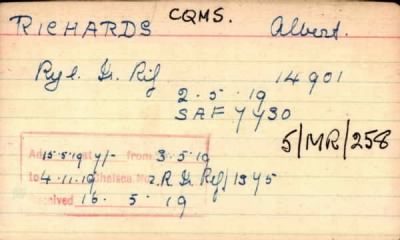 RICHARDS CQMS. Albert.
Ryl. Ir. Rif 14901
2.5.19
SAF 7730
5/MR/258
15.5.19 7/- from 3.5.19
to 4.11.19 Chelsea No 2.R Ir Rif/1375
16. 5. 19